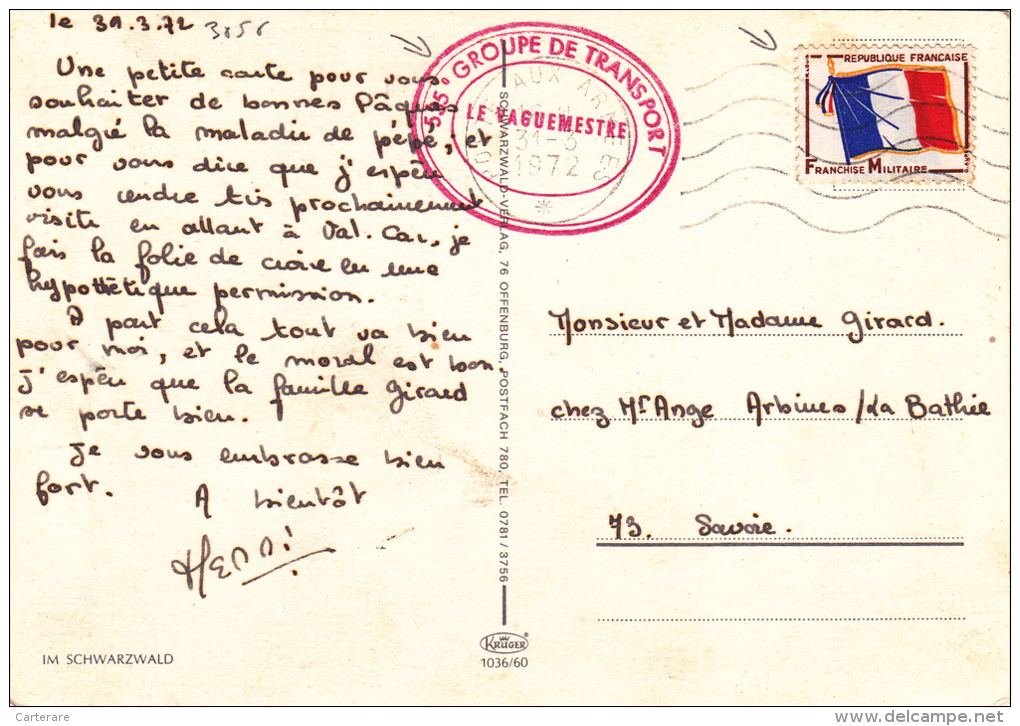 le 31.3.72 3856
Une petite carte pour vous
souhaiter de bonnes Pâques
malgré la maladie de pépé, et
pour vous dire que j'espère
vous rendre très prochainement
visite en allant à Val. Car, je
fais la folie de croire en une
hypothétique permission.
A part cela tout va bien
pour moi, et le moral est bon.
J'espère que la famille Girard
se porte bien.
Je vous embrasse bien
fort.
A bientôt
Henri
IM SCHWARZWALD
535e GROUPE DE TRANSPORT
LE VAGUEMESTRE
AUX ARMEES
31-3
1972
SCHWARZWALD-VERLAG, 76 OFFENBURG, POSTFACH 780, TEL. 0781/3756
KRÜGER
1036/60
REPUBLIQUE FRANCAISE
FRANCHISE MILITAIRE
Monsieur et Madame Girard.
chez Mr Ange Arbines/La Bathie
73. Savoie.
Carterare
www.delcampe.net